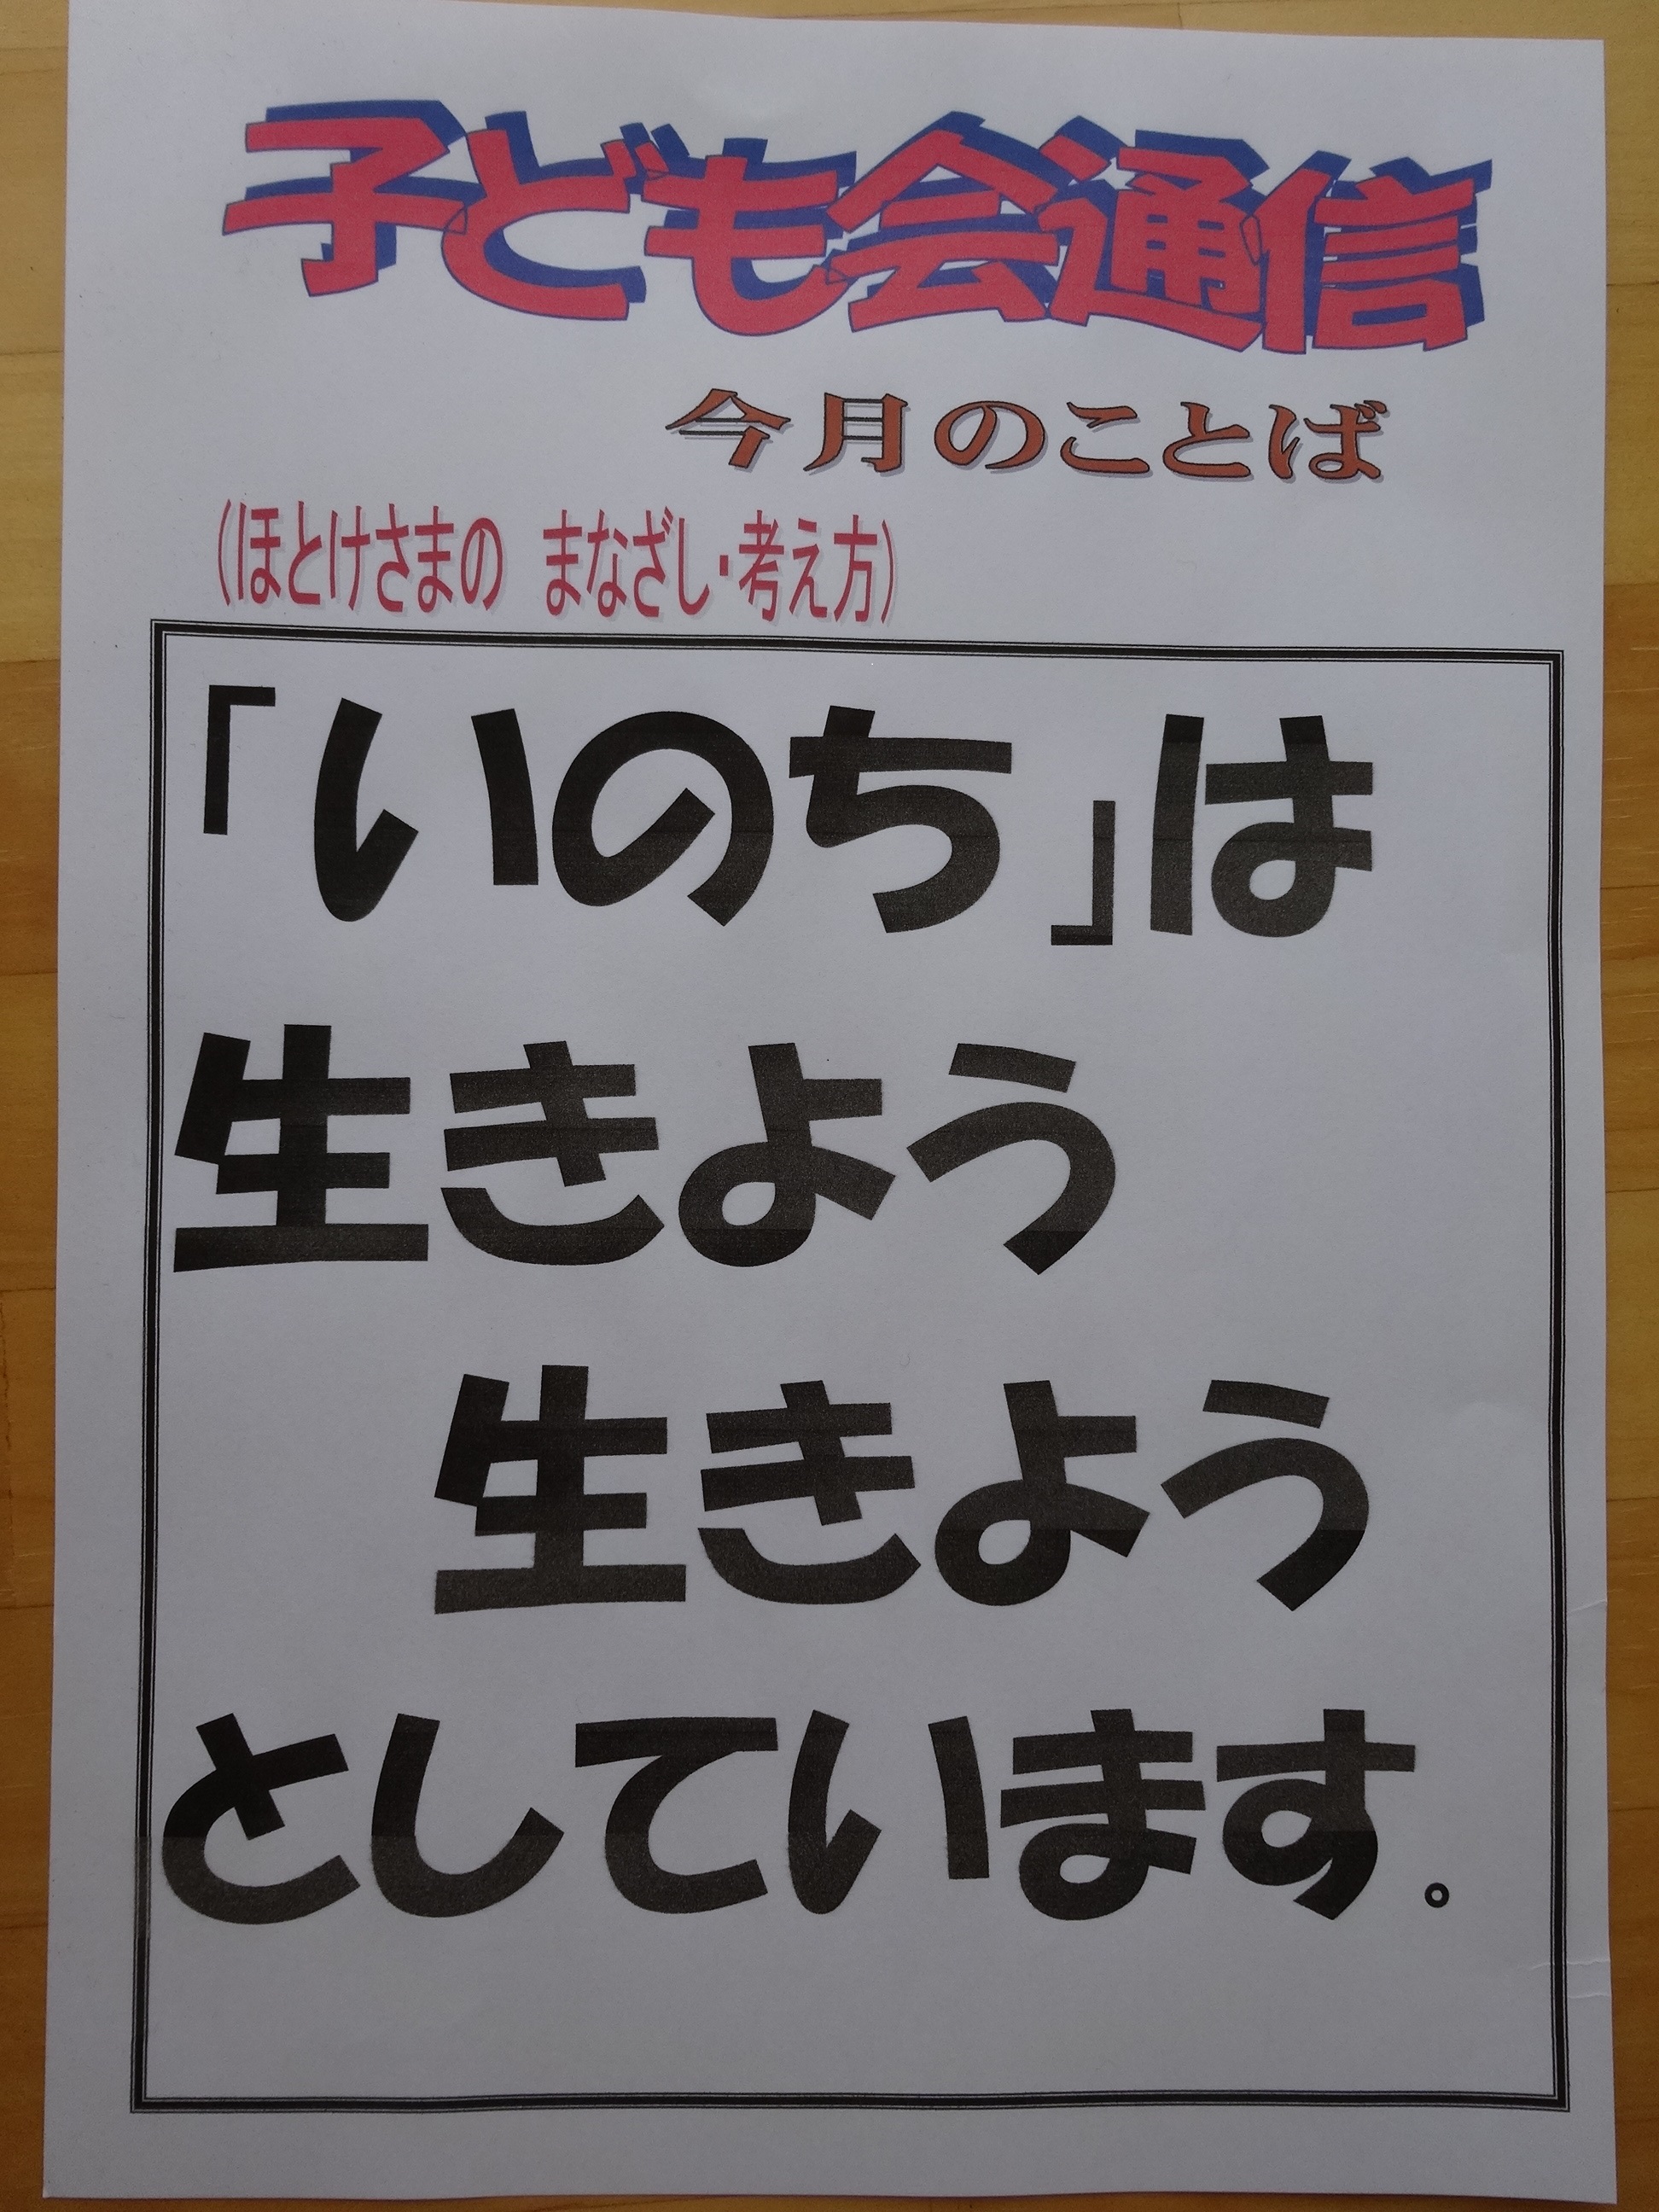 子ども会通信
今月のことば
(ほとけさまの　まなざし・考え方)
「いのち」は
生きよう
生きよう
としています。